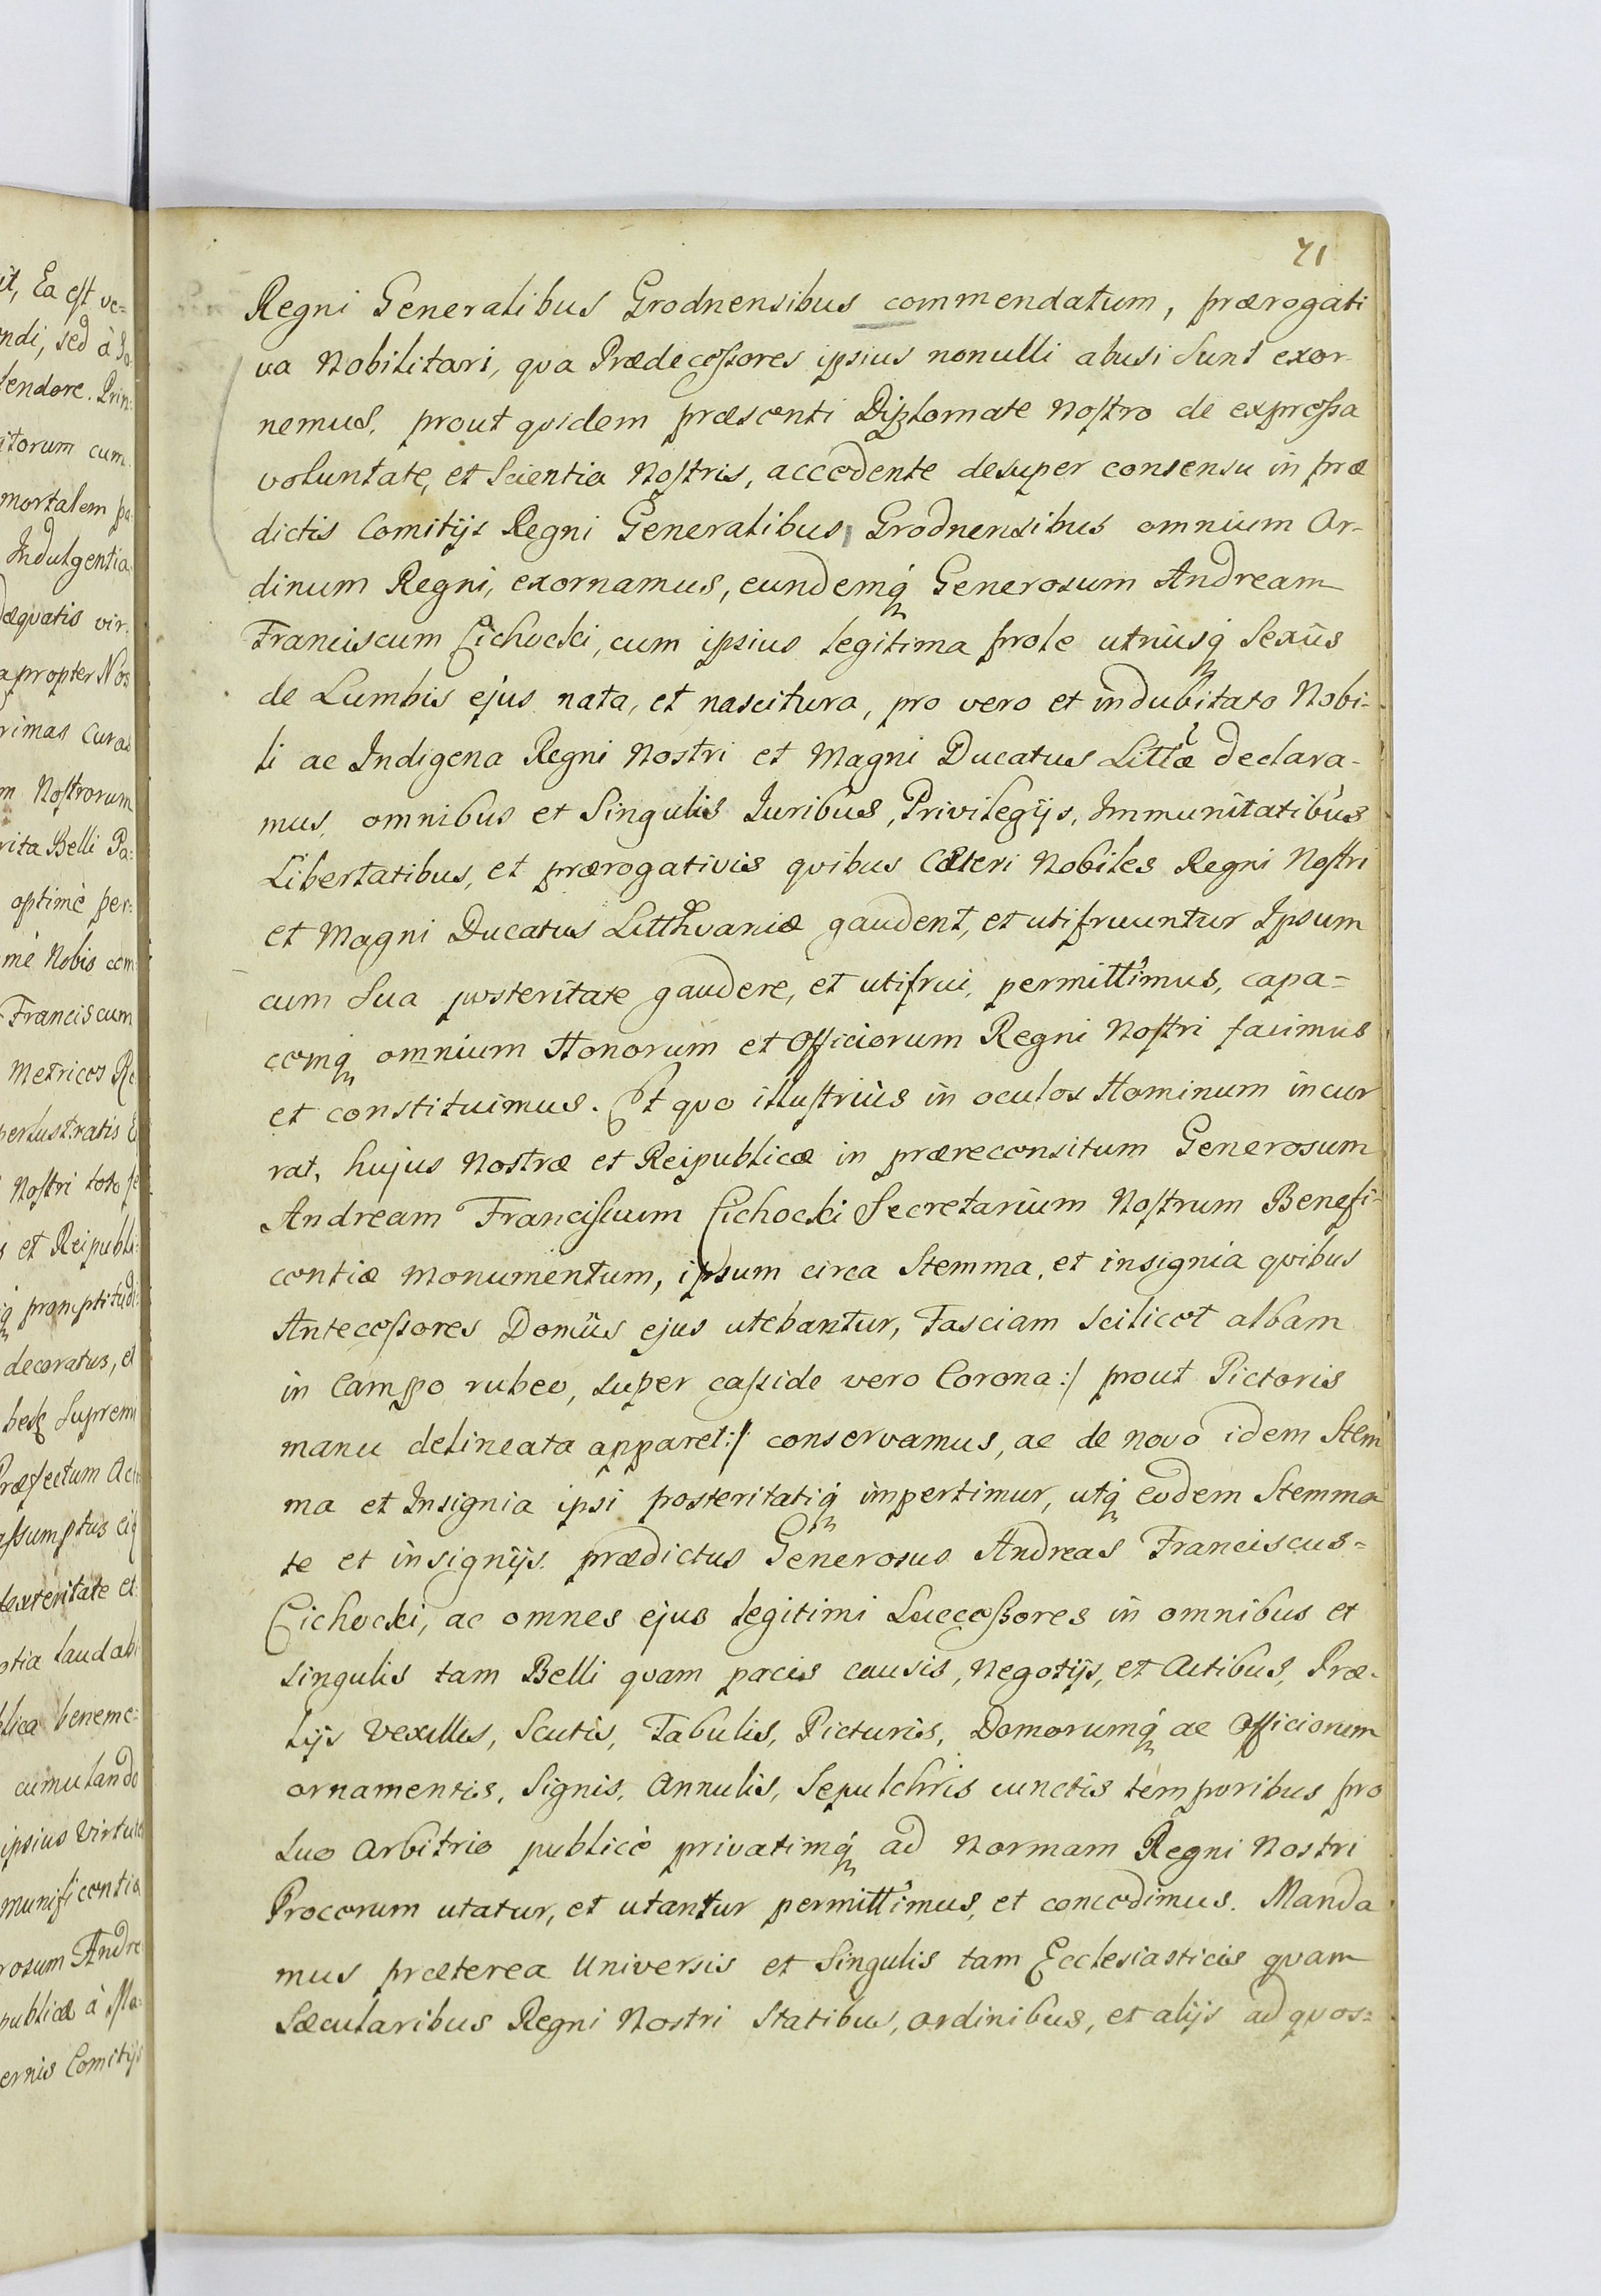 71
Regni Generalibus Grodnensibus commendatum, prærogati
va Nobilitari, qva Prædecessores ipsius nonulli abusi sunt exor-
nemus, prout qvidem præsenti Diplomate Nostro de expressa
voluntate, et Scientia Nostris, accedente desuper consensu in præ
dictis Comitijs Regni Generalibus Grodnensibus omnium Or-
dinum Regni, exornamus, eundemq́ Generosum Andream
Franciscum Cichocki, cum ipsius legitima prole utriusq́ Sexûs
de Lumbis ejus nata, et nascitura, pro vero et indubitato Nobi-
li ac Indigena Regni Nostri et Magni Ducatus Littæ declara-
mus, omnibus et Singulis Iuribus, Privilegijs, Immunitatibus
Libertatibus, et prærogativis qvibus Cæteri Nobiles Regni Nostri
et Magni Ducatus Litthvaniæ gaudent, et utifruuntur Ipsum
cum Sua posteritate gaudere, et utifrui, permittimus, capa=
cemq́ omnium Honorum et Officiorum Regni Nostri facimus
et constituimus. Et qvo illustriùs in oculos Hominum incur
rat, hujus Nostræ et Reipublicæ in præreconsitum Generosum
Andream Franciscum Cichocki Secretarium Nostrum Benefi-
centiæ monumentum, ipsum circa Stemma, et insignia qvibus
Antecessores Domûs ejus utebantur, Fasciam scilicet albam
in Campo rubeo, super casside vero Corona :/ prout Pictoris
manu delineata apparet :/: conservamus, ac de novo idem Stem
ma et Insignia ipsi posteritatiq́ impertimur, utq́ eodem Stemma
te et insignijs. prædictus Generosus Andreas Franciscus=
Cichocki, ac omnes ejus legitimi Successores in omnibus et
singulis tam Belli qvam pacis causis, Negotijs, et Actibus, Præ-
lijs Vexillis, Scutis, Tabulis, Picturis, Domorumq́ ac Officiorum
ornamentis, Signis, Annulis, Sepulchris cunctis temporibus pro
suo Arbitrio publicè privatimq́ ad Normam Regni Nostri
Procerum utatur, et utantur permittimus, et concedimus. Manda
mus præterea Universis et Singulis tam Ecclesiasticis qvam
Sæcularibus Regni Nostri Statibus, ordinibus, et alijs ad qvos=